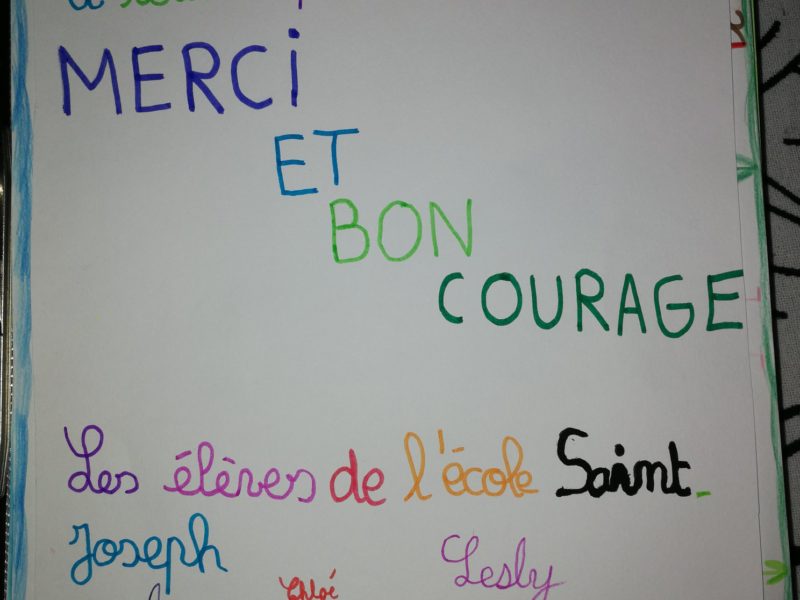 MERCI
ET
BON
COURAGE
Les élèves de l'école Saint-
Joseph
Lesly
Chloé